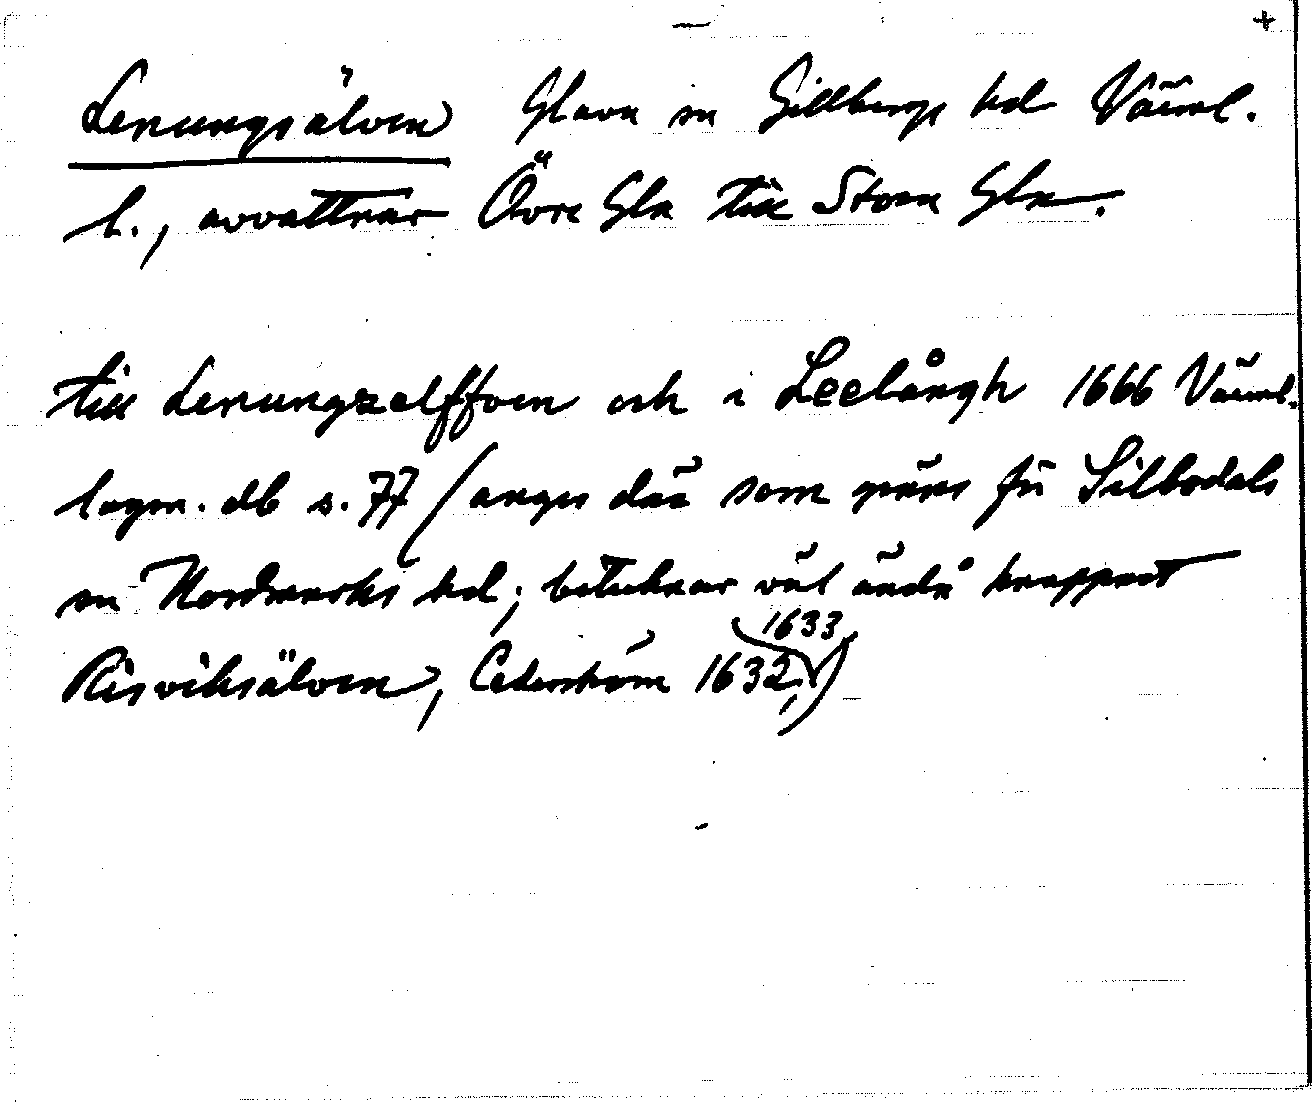 +
Lenungsälven Glava sn Gillbergs hd Värml.
l., avvattnar Övre Gla till Stora Gla.
till Lenungzelffven och i Leelångh 1666 Värml.
lagm. db s. 77 (anges där som gräns för Silbodals
sn Nordmarks hd; betecknar väl ändå knappast
1633
Risviksälven, Cederström 1632,)